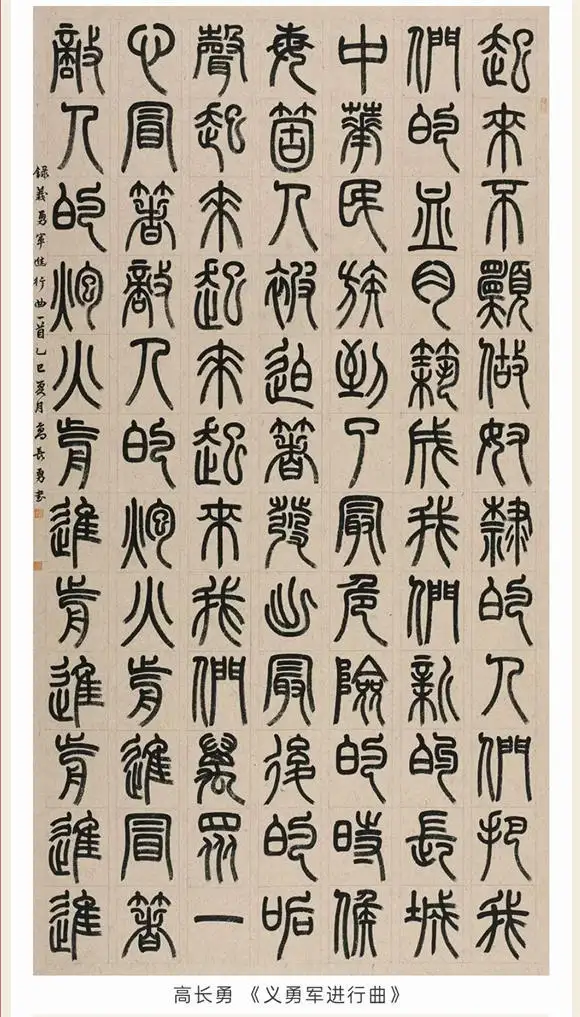 起來不願做奴隸的人們把我
們的血肉築成我們新的長城
中華民族到了最危險的時候
每箇人被迫著發出最後的吼
聲起來起來起來我們萬眾一
心冒著敵人的炮火前進冒著
敵人的炮火前進前進前進進
錄義勇軍進行曲一首乙巳夏月高長勇書
高长勇 《义勇军进行曲》